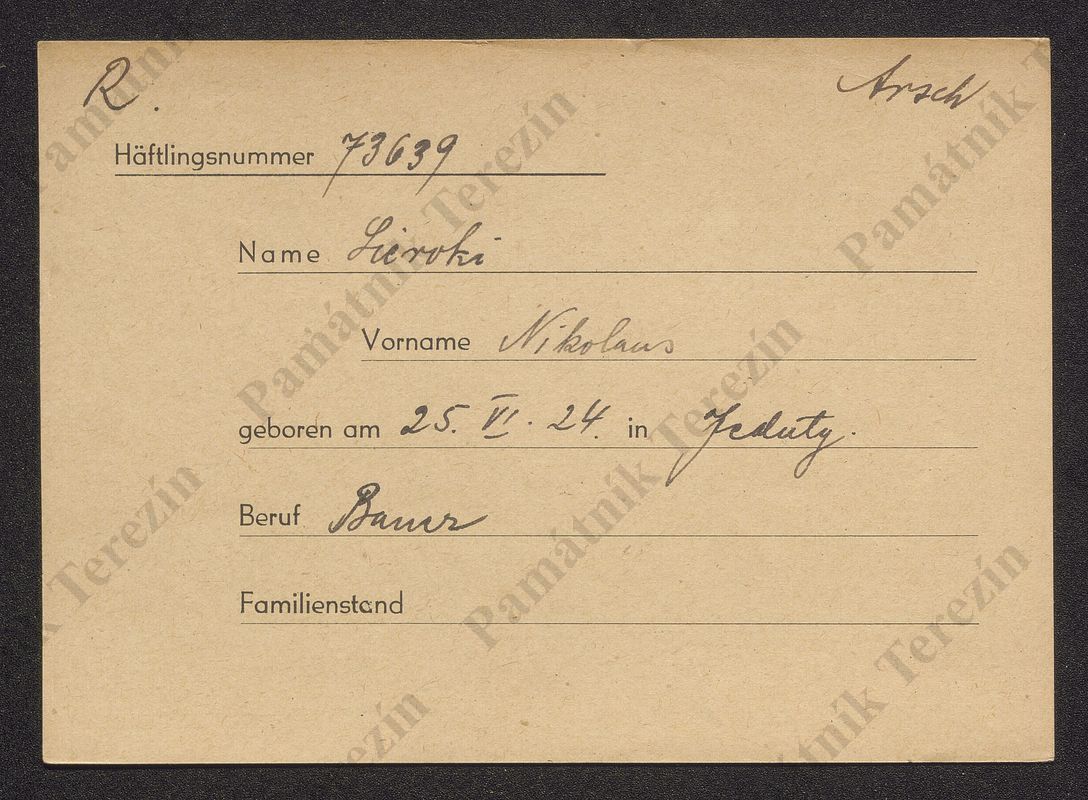 R. Arsch
Häftlingsnummer 73639
Name Sieroki
Vorname Nikolaus
geboren am 25. VI. 24. in Jeduty.
Beruf Bauer
Familienstand
Památník Terezín